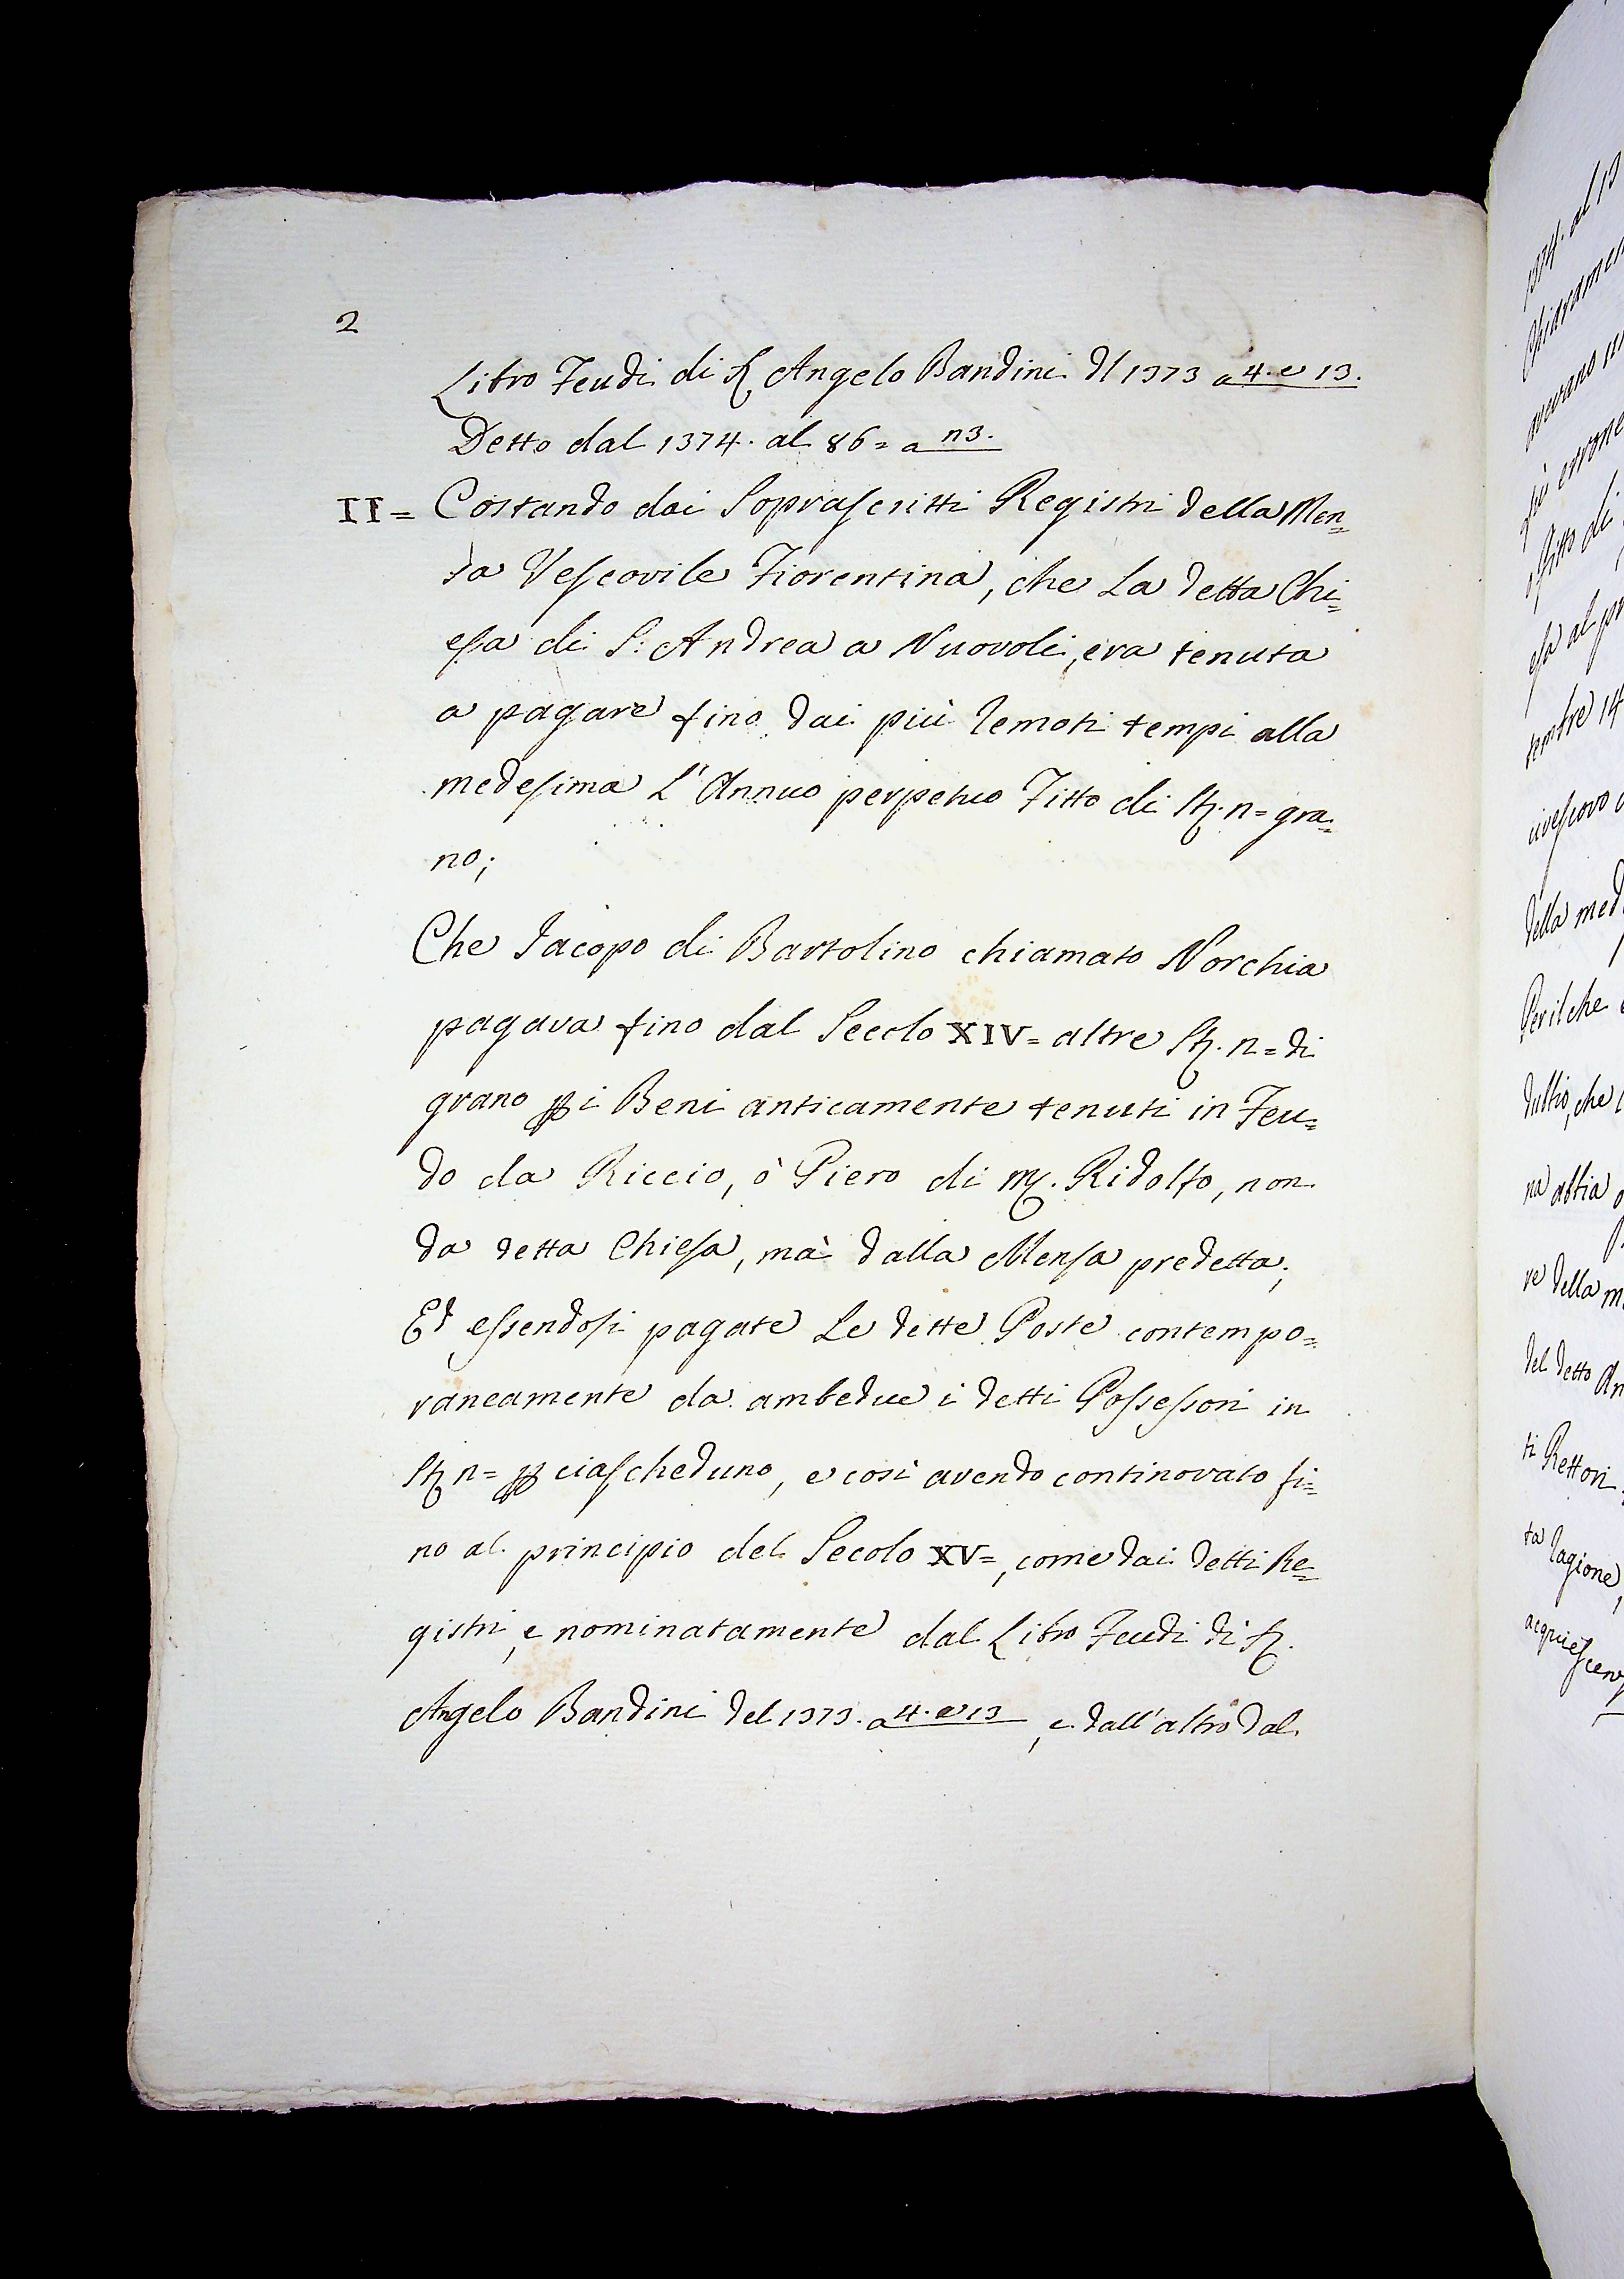 2
Libro Feudi di S. Angelo Bandini dl 1373 a 4. e 13.
Detto dal 1374. al 86= a n3.
II= Costando dai Soprascritti Registri della Men=
sa Vescovile Fiorentina, che La detta Chi=
esa di S: Andrea a Nuovoli, era tenuta
a pagare fino dai più remoti tempi alla
medesima L'Annuo perpetuo Fitto di St. n= gra=
no;
Che Iacopo di Bartolino chiamato Norchia
pagava fino dal Secolo XIV= altre St. n= di
grano p i Beni anticamente tenuti in Feu=
do da Riccio, ò Piero di M. Ridolfo, non
da detta Chiesa, mà dalla Mensa predetta;
Ed essendosi pagate Le dette Poste contempo=
raneamente da ambedue i detti Possessori in
St n= p ciascheduno, e così avendo continovato fi=
no al principio del Secolo XV=, come dai detti Re=
gistri, e nominatamente dal Libro Feudi di S.
Angelo Bandini del 1373. a 4. e 13, e dall'altro dal
1374. al 13
avevano
fù errone
Fitto di
esa al
tembre 14
civescovo
della med
Per il che
dubbio, che
na abbia
re della m
del detto An
ti Rettori
ta ragione,
acquiescenz